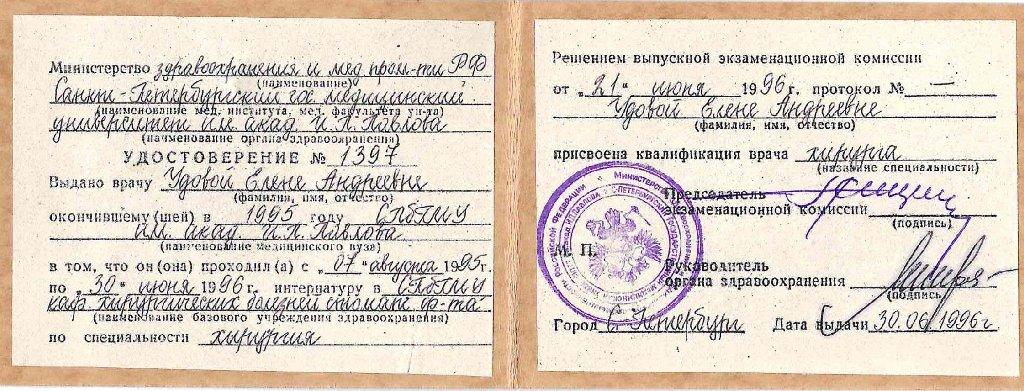 Министерство здравоохранения и мед пром-ти РФ
(наименование)
Санкт-Петербургский гос. медицинский
(наименование мед. института, мед. факультета ун-та)
университет им. акад. И. П. Павлова
(наименование органа здравоохранения)
УДОСТОВЕРЕНИЕ № 1397
Выдано врачу Удовой Елене Андреевне
(фамилия, имя, отчество)
окончившему (шей) в 1995 году СПбГМУ
им. акад. И.П. Павлова
(наименование медицинского вуза)
в том, что он (она) проходил (а) с „07" августа 1995г.
по „30" июня 1996г. интернатуру в СПбГМУ
каф. хирургических болезней стомат. ф-та
(наименование базового учреждения здравоохранения)
по специальности хирургия
Решением выпускной экзаменационной комиссии
от „21" июня 1996г. протокол № —
Удовой Елене Андреевне
(фамилия, имя, отчество)
присвоена квалификация врача хирурга
(название специальности)
Председатель
экзаменационной комиссии
(подпись)
М. П.
Руководитель
органа здравоохранения
(подпись)
Город С. Петербург Дата выдачи 30.06.1996г